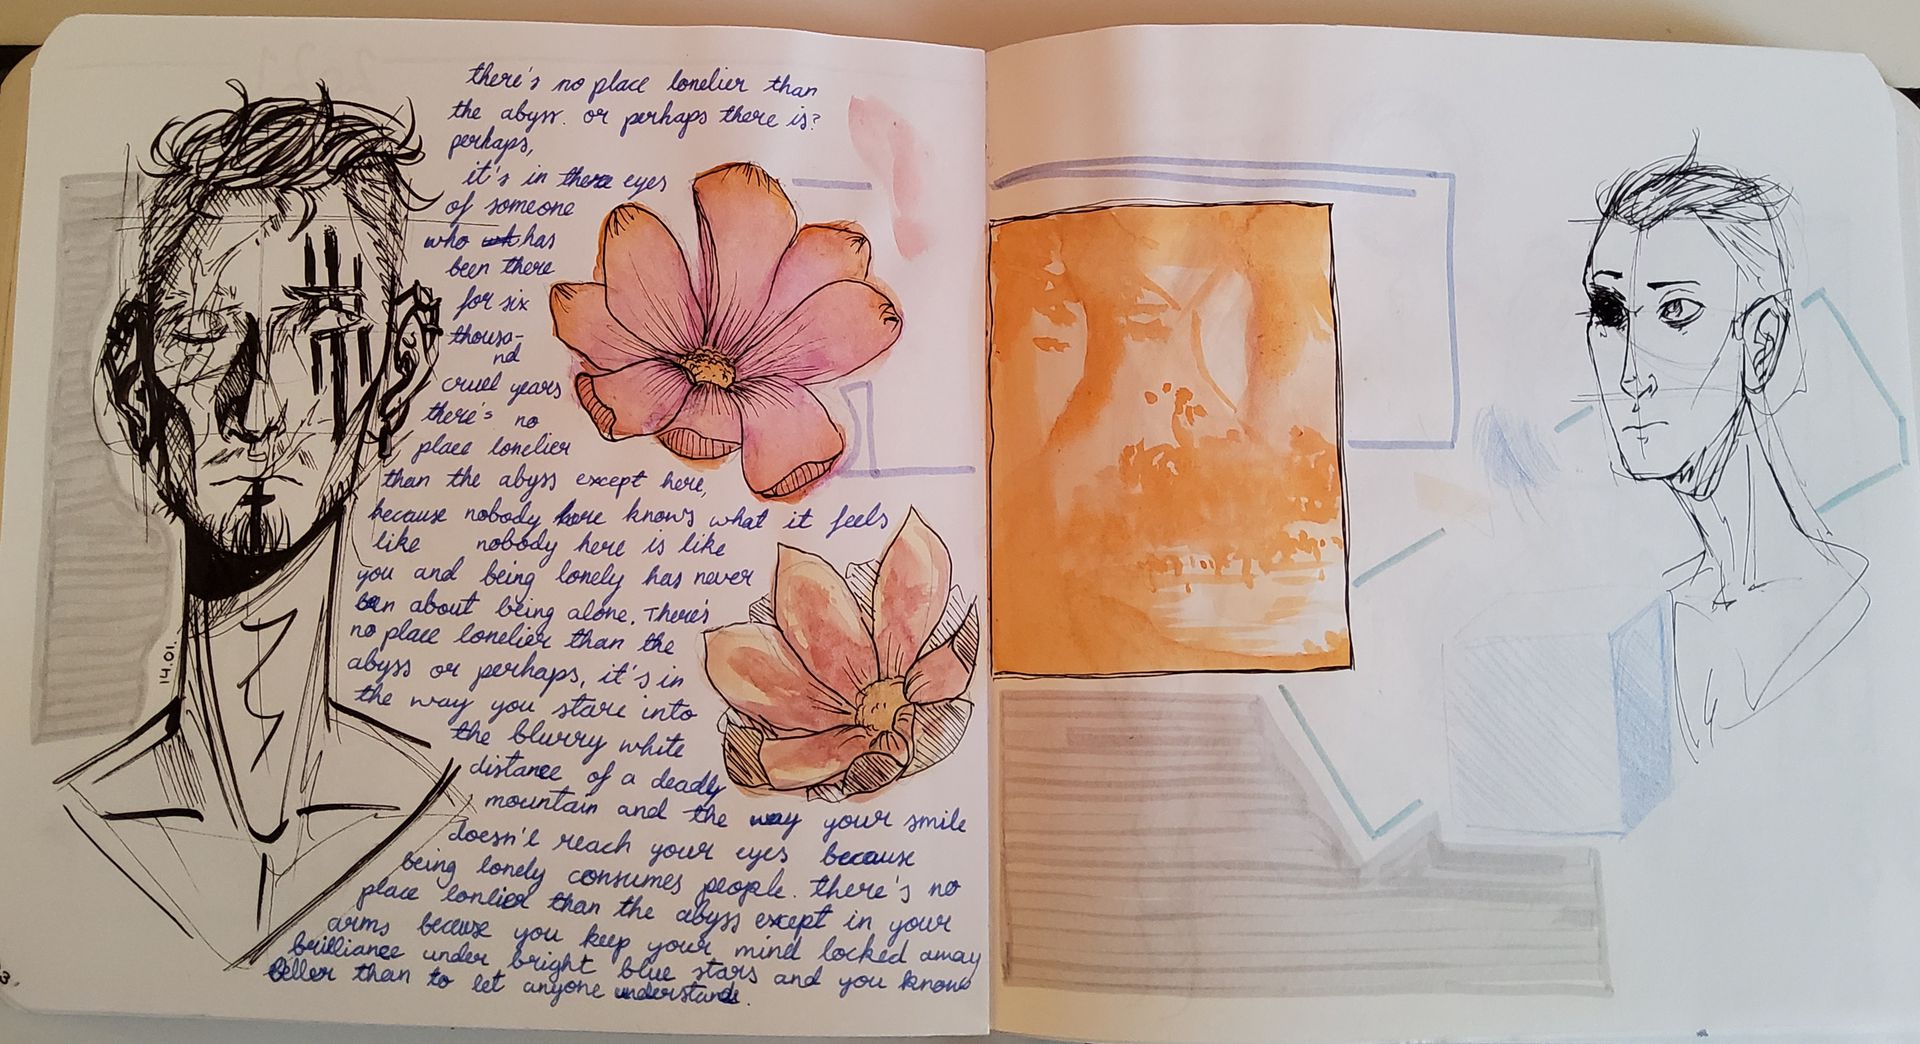 there's no place lonelier than
the abyss. or perhaps there is?
perhaps,
it's in there eyes
of someone
who has
been there
for six
thousa-
nd
cruel years
there's no
place lonelier
than the abyss except here,
because nobody here knows what it feels
like nobody here is like
you and being lonely has never
been about being alone. There's
no place lonelier than the
abyss or perhaps, it's in
the way you stare into
the blurry white
distance of a deadly
mountain and the way your smile
doesn't reach your eyes because
being lonely consumes people. there's no
place lonlier than the abyss except in your
arms because you keep your mind locked away
brilliance under bright blue stars and you know
better than to let anyone understand.
14.01.